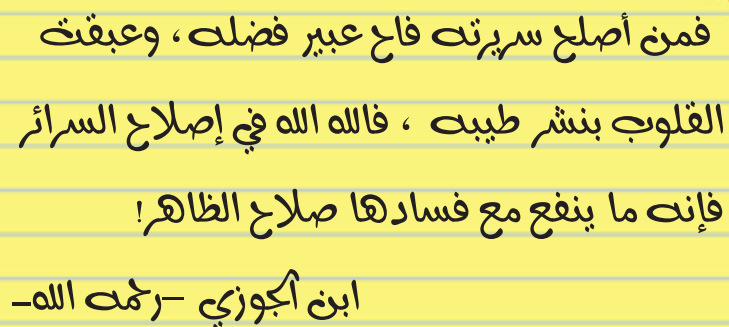 فمن أصلح سريرته فاح عبير فضله ، وعبقت
القلوب بنشر طيبه ، فالله الله في إصلاح السرائر
فإنه ما ينفع مع فسادها صلاح الظاهر!
ابن الجوزي –رحمه الله–